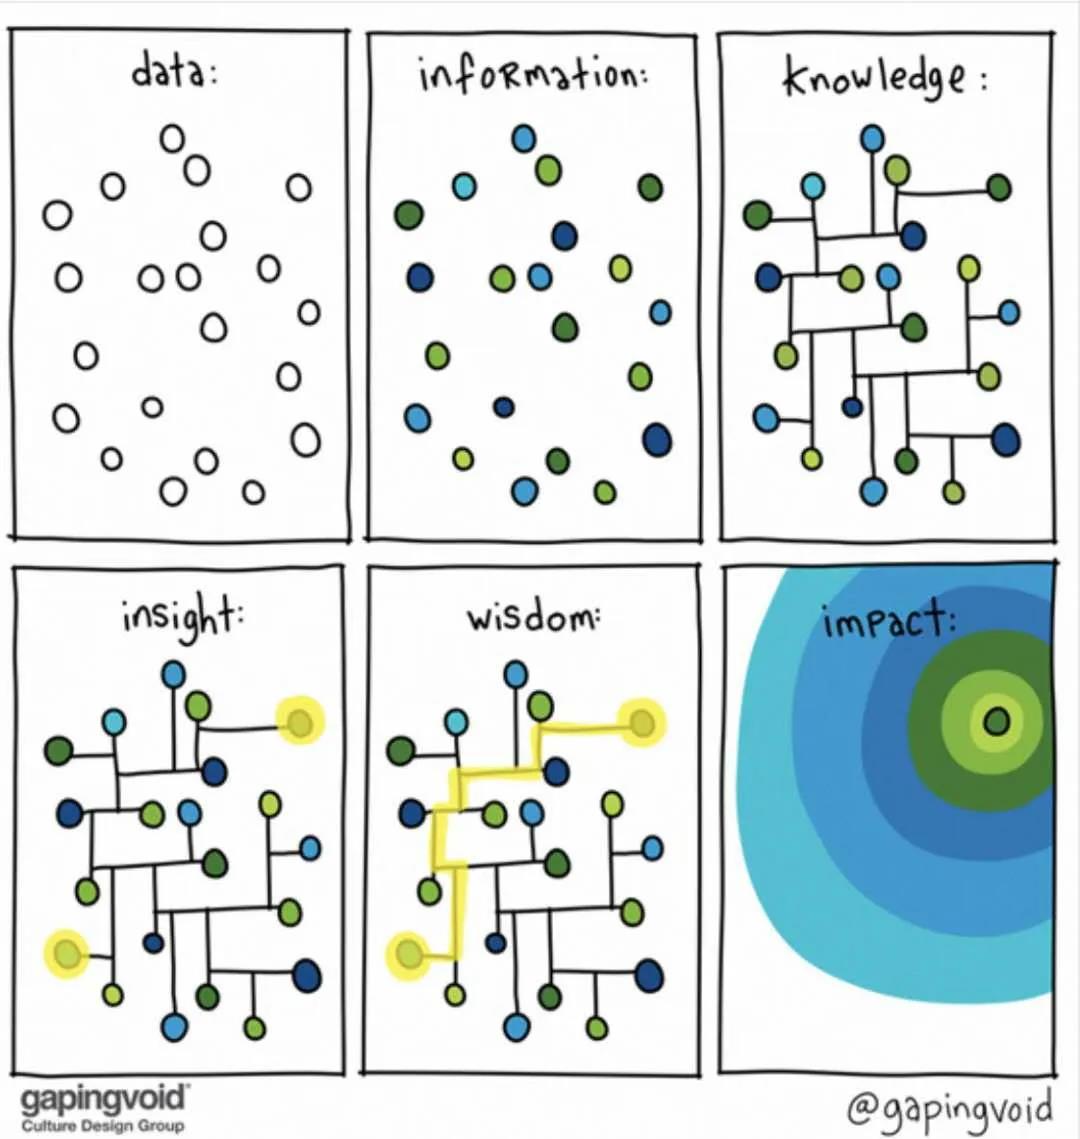 data:
information:
knowledge:
insight:
wisdom:
impact:
gapingvoid
Culture Design Group
@gapingvoid